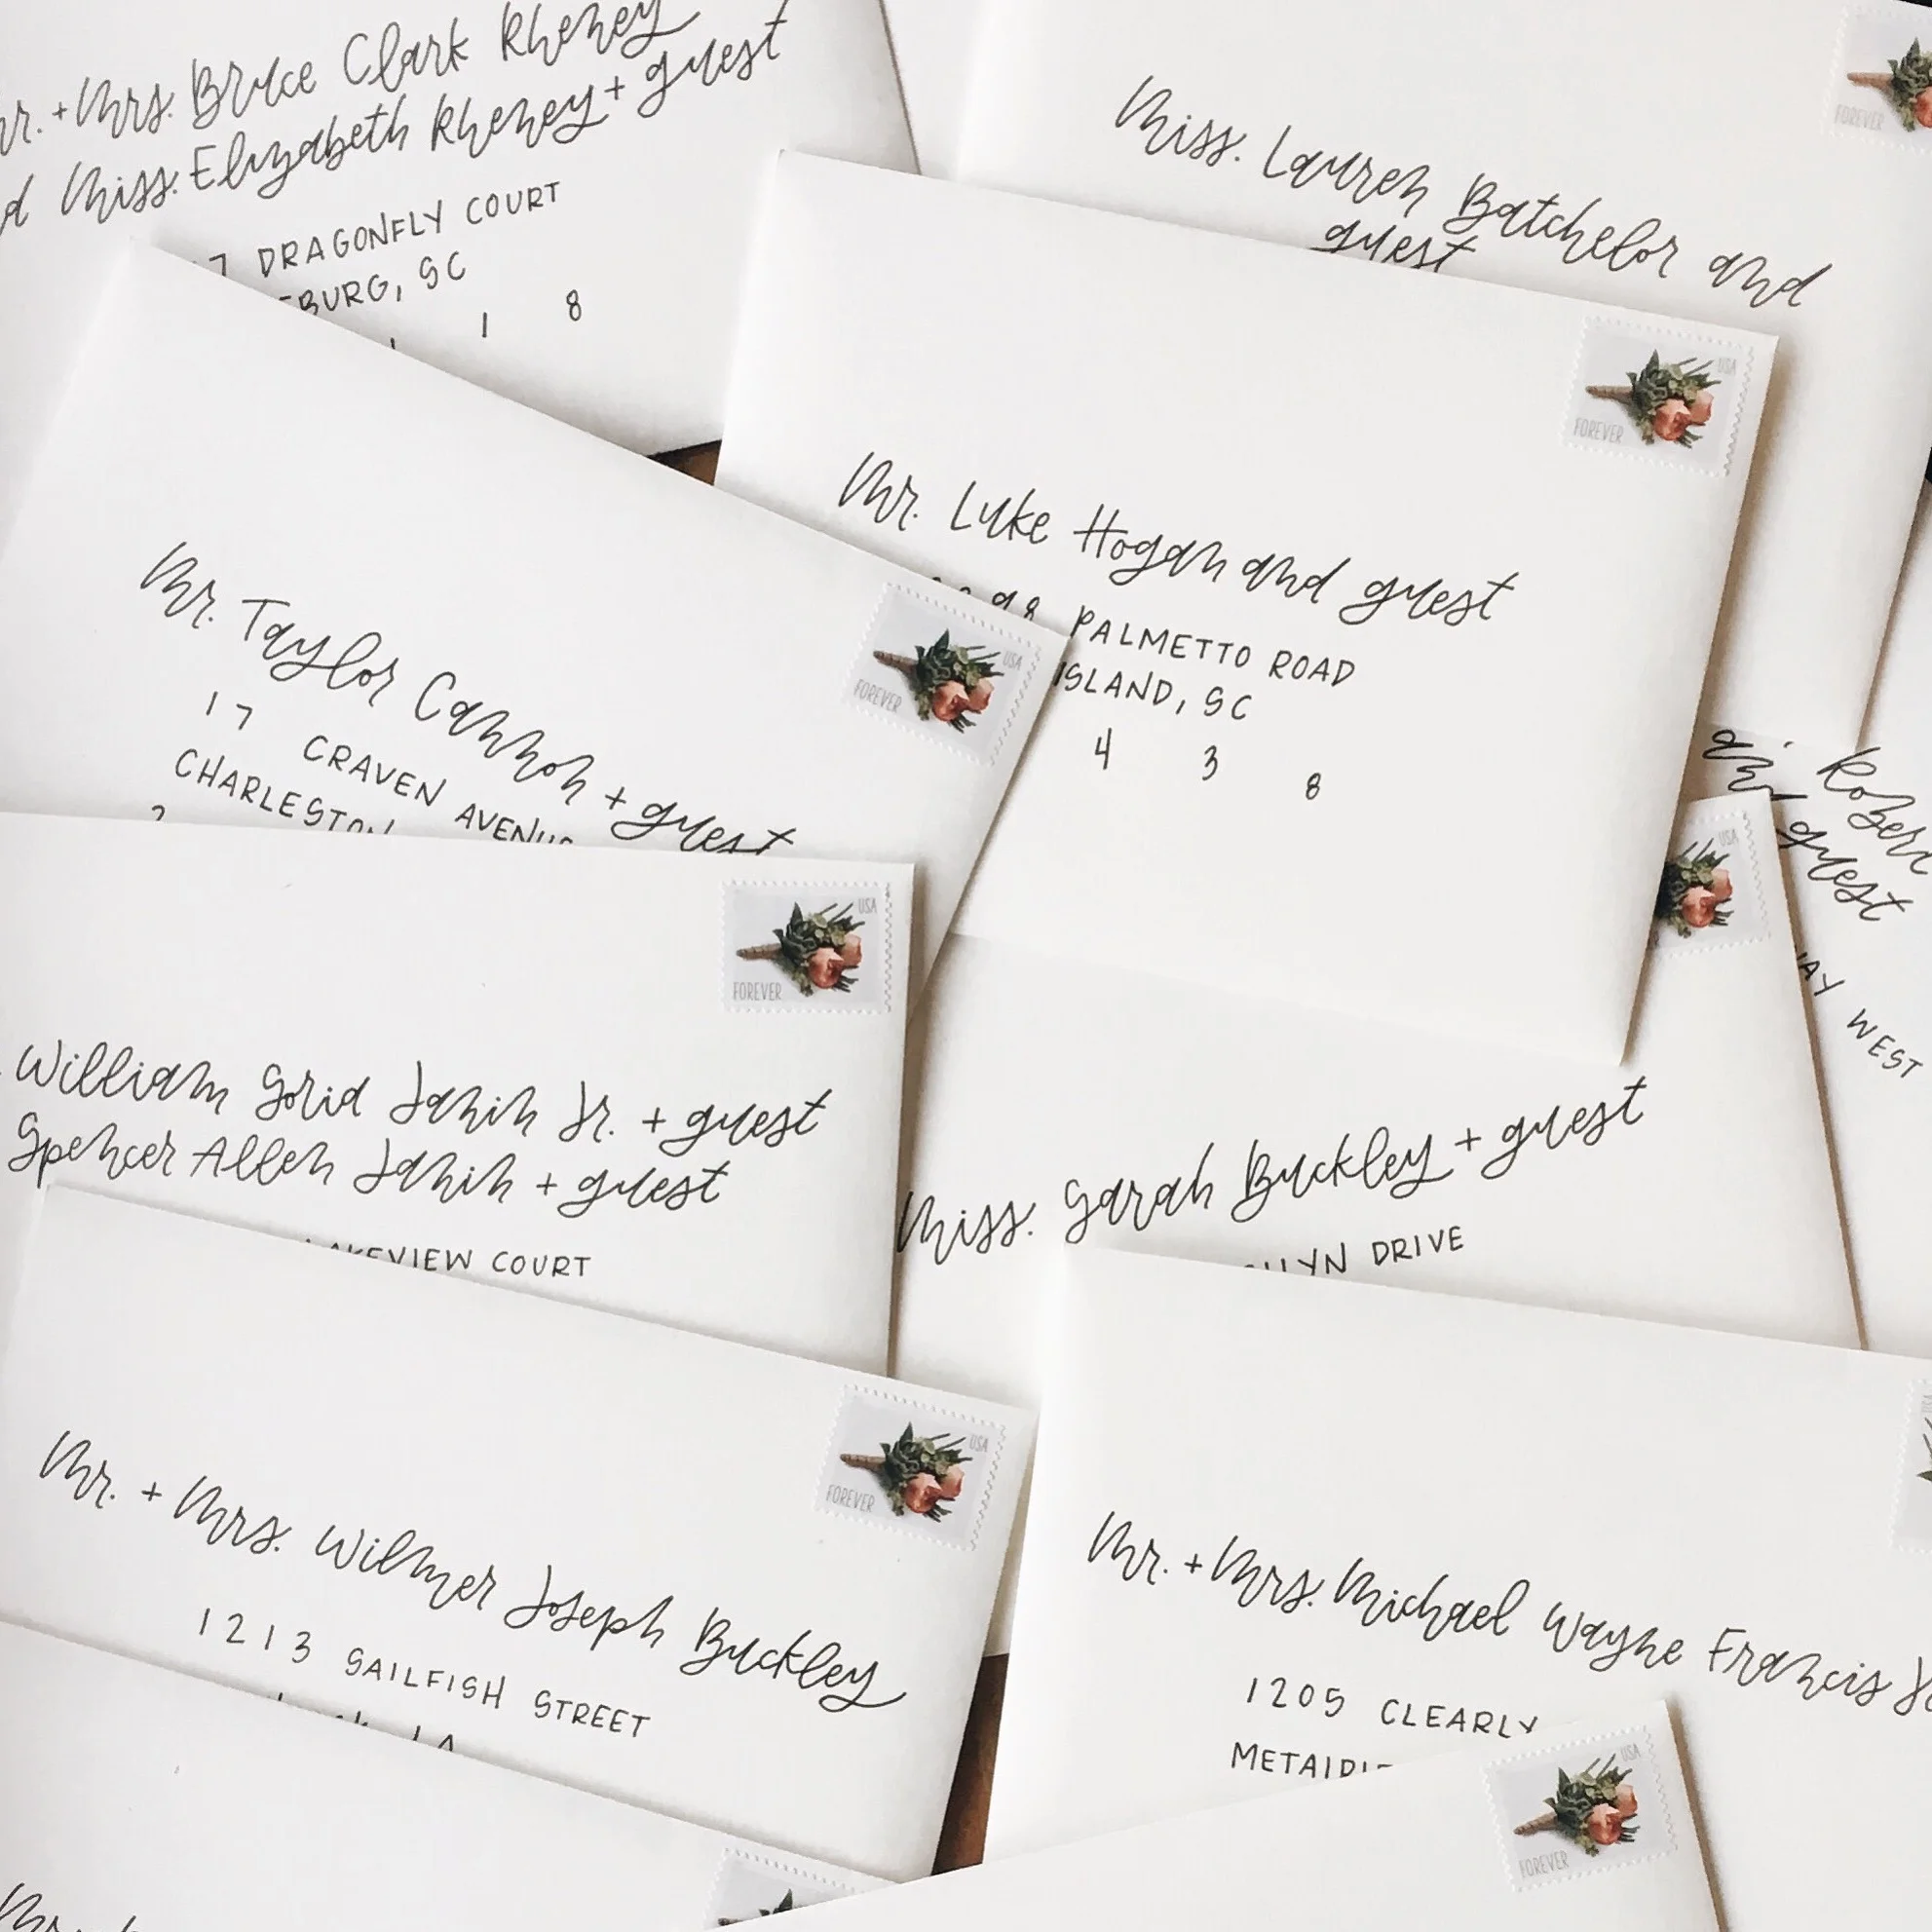 + Mrs. Bruce Clark Rheney
Miss. Elizabeth Rheney + guest
7 DRAGONFLY COURT
BURG, SC
1 8
Miss. Lauren Batchelor and
guest
FOREVER
Mr. Luke Hogan and guest
98 PALMETTO ROAD
ISLAND, SC
4 3 8
USA
FOREVER
Mr. Taylor Cannon + guest
17 CRAVEN AVENUE
CHARLESTON
USA
FOREVER
and guest
WAY WEST
USA
William Sorid Janin Jr. + guest
Spencer Allen Janin + guest
LAKEVIEW COURT
USA
FOREVER
Miss. Sarah Buckley + guest
DRIVE
Mr. + Mrs. Wilmer Joseph Buckley
1213 SAILFISH STREET
LA
USA
FOREVER
Mr. + Mrs. Michael Wayne Francis
1205 CLEARLY
USA
USA
FOREVER